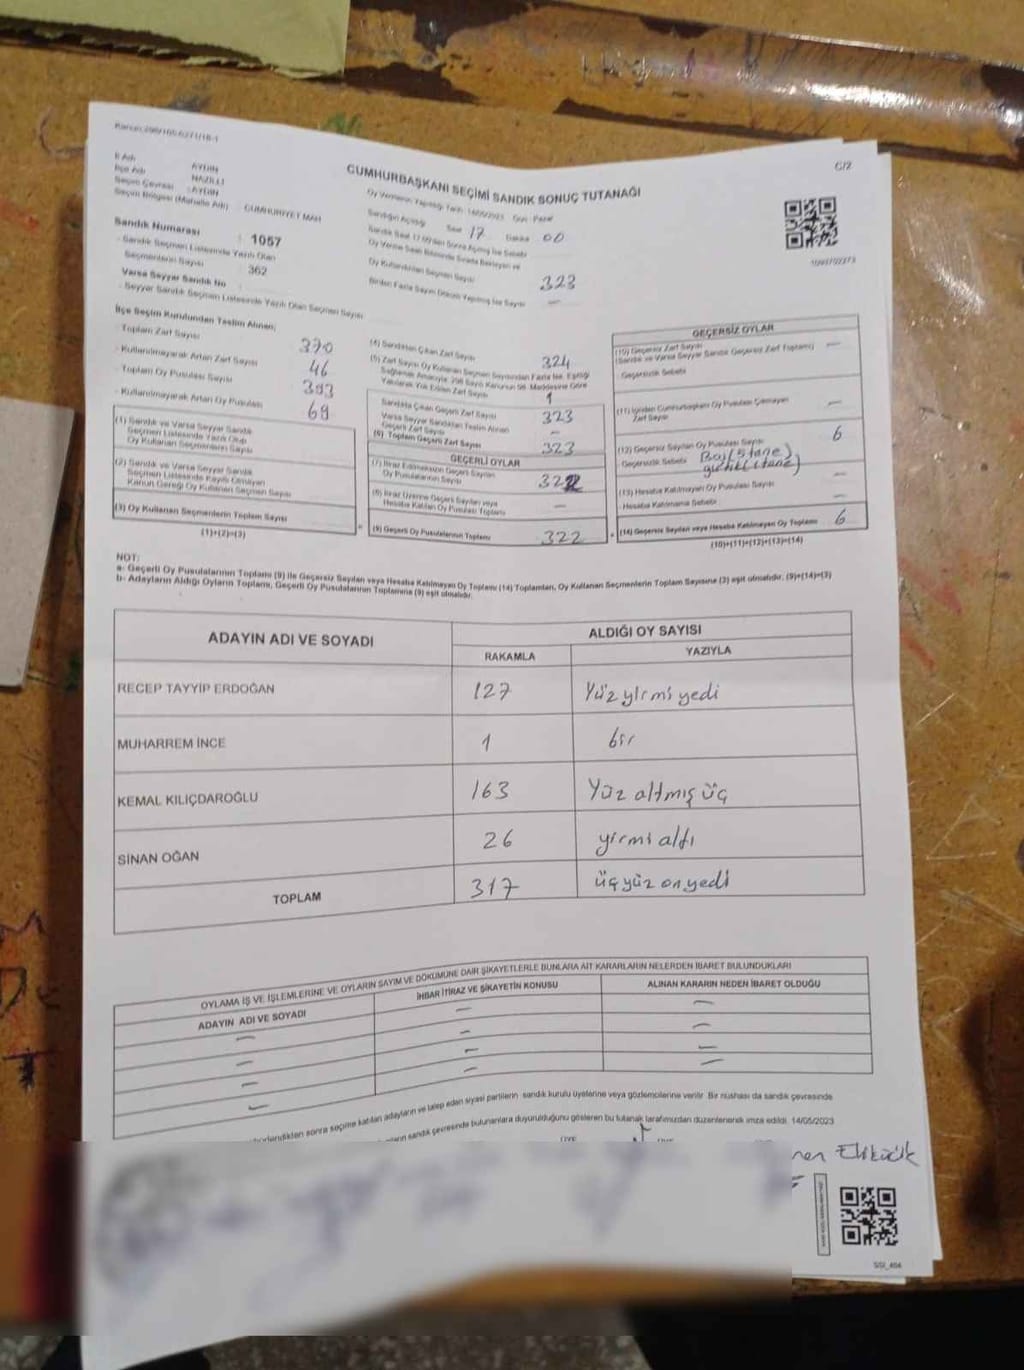 Kanun:298/105-6271/18-1
C/2
CUMHURBAŞKANI SEÇİMİ SANDIK SONUÇ TUTANAĞI
İl Adı : AYDIN
İlçe Adı : NAZİLLİ
Seçim Çevresi : AYDIN
Seçim Bölgesi (Mahalle Adı) : CUMHURİYET MAH
Sandık Numarası : 1057
- Sandık Seçmen Listesinde Yazılı Olan
Seçmenlerin Sayısı : 362
Varsa Seyyar Sandık No
- Seyyar Sandık Seçmen Listesinde Yazılı Olan Seçmen Sayısı
Oy Vermenin Yapıldığı Tarih: 14/05/2023 Gün: Pazar
Sandığın Açıldığı Saat 17 Dakika 00
Sandık Saat 17.00'den Sonra Açılmış İse Sebebi
Oy Verme Saati Bitiminde Sırada Bekleyen ve
Oy Kullandırılan Seçmen Sayısı 323
Birden Fazla Sayım Döküm Yapılmış İse Sayısı —
İlçe Seçim Kurulundan Teslim Alınan;
- Toplam Zarf Sayısı 370
- Kullanılmayarak Artan Zarf Sayısı 46
- Toplam Oy Pusulası Sayısı 393
- Kullanılmayarak Artan Oy Pusulası 69
(1) Sandık ve Varsa Seyyar Sandık
Seçmen Listesinde Yazılı Olup
Oy Kullanan Seçmenlerin Sayısı
(2) Sandık ve Varsa Seyyar Sandık
Seçmen Listesinde Kayıtlı Olmayan
Kanun Gereği Oy Kullanan Seçmen Sayısı
(3) Oy Kullanan Seçmenlerin Toplam Sayısı
(1)+(2)=(3)
(4) Sandıktan Çıkan Zarf Sayısı 324
(5) Zarf Sayısı Oy Kullanan Seçmen Sayısından Fazla İse, Eşitliği
Sağlamak Amacıyla, 298 Sayılı Kanunun 98. Maddesine Göre
Yakılarak Yok Edilen Zarf Sayısı 1
Sandıkta Çıkan Geçerli Zarf Sayısı 323
Varsa Seyyar Sandıktan Teslim Alınan
Geçerli Zarf Sayısı —
(6) Toplam Geçerli Zarf Sayısı 323
GEÇERLİ OYLAR
(7) İtiraz Edilmeksizin Geçerli Sayılan
Oy Pusulalarının Sayısı 322
(8) İtiraz Üzerine Geçerli Sayılan veya
Hesaba Katılan Oy Pusulası Toplamı —
(9) Geçerli Oy Pusulalarının Toplamı 322
GEÇERSİZ OYLAR
(10) Geçersiz Zarf Sayısı —
(Sandık ve Varsa Seyyar Sandık Geçersiz Zarf Toplamı)
- Geçersizlik Sebebi
(11) İçinden Cumhurbaşkanı Oy Pusulası Çıkmayan
Zarf Sayısı —
(12) Geçersiz Sayılan Oy Pusulası Sayısı 6
- Geçersizlik Sebebi
(13) Hesaba Katılmayan Oy Pusulası Sayısı —
- Hesaba Katılmama Sebebi —
(14) Geçersiz Sayılan veya Hesaba Katılmayan Oy Toplamı 6
(10)+(11)+(12)+(13)=(14)
NOT:
a- Geçerli Oy Pusulalarının Toplamı (9) ile Geçersiz Sayılan veya Hesaba Katılmayan Oy Toplamı (14) Toplamları, Oy Kullanan Seçmenlerin Toplam Sayısına (3) eşit olmalıdır. (9)+(14)=(3)
b- Adayların Aldığı Oyların Toplamı, Geçerli Oy Pusulalarının Toplamına (9) eşit olmalıdır.
ADAYIN ADI VE SOYADI ALDIĞI OY SAYISI
RAKAMLA YAZIYLA
RECEP TAYYİP ERDOĞAN 127 Yüz yirmi yedi
MUHARREM İNCE 1 bir
KEMAL KILIÇDAROĞLU 163 Yüz altmış üç
SİNAN OĞAN 26 yirmi altı
TOPLAM 317 üç yüz on yedi
OYLAMA İŞ VE İŞLEMLERİNE VE OYLARIN SAYIM VE DÖKÜMÜNE DAİR ŞİKAYETLERLE BUNLARA AİT KARARLARIN NELERDEN İBARET BULUNDUKLARI
ADAYIN ADI VE SOYADI İHBAR İTİRAZ VE ŞİKAYETİN KONUSU ALINAN KARARIN NEDEN İBARET OLDUĞU
— — —
— — —
— — —
— — —
sonra seçime katılan adayların ve talep eden siyasi partilerin sandık kurulu üyelerine veya gözlemcilerine verilir. Bir nüshası da sandık çevresinde
sandık çevresinde bulunanlara duyurulduğunu gösteren bu tutanak tarafımızdan düzenlenerek imza edildi. 14/05/2023
SSI_464